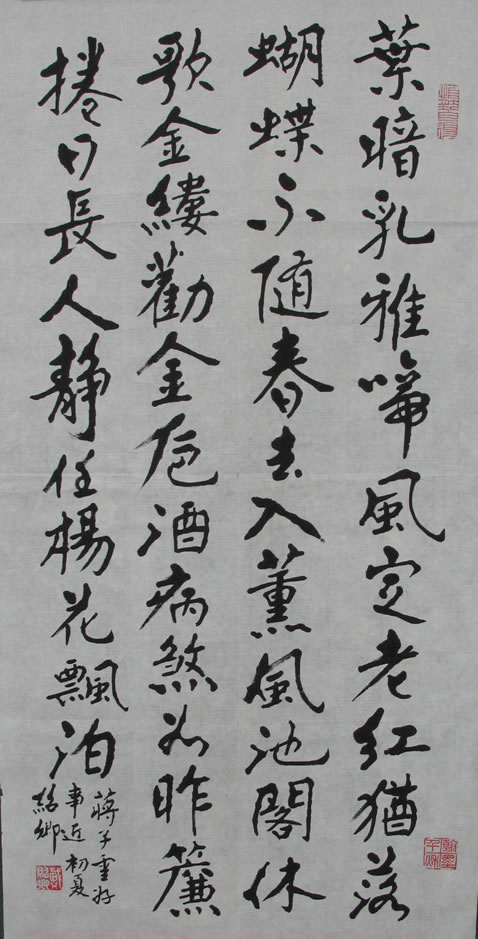 葉暗乳雅啼風定老紅猶落
蝴蝶不随春去入薰風池閣休
歌金縷勸金卮酒病煞如昨簾
捲日長人靜任楊花飄泊
蔣子雲好
事近初夏
紹卿